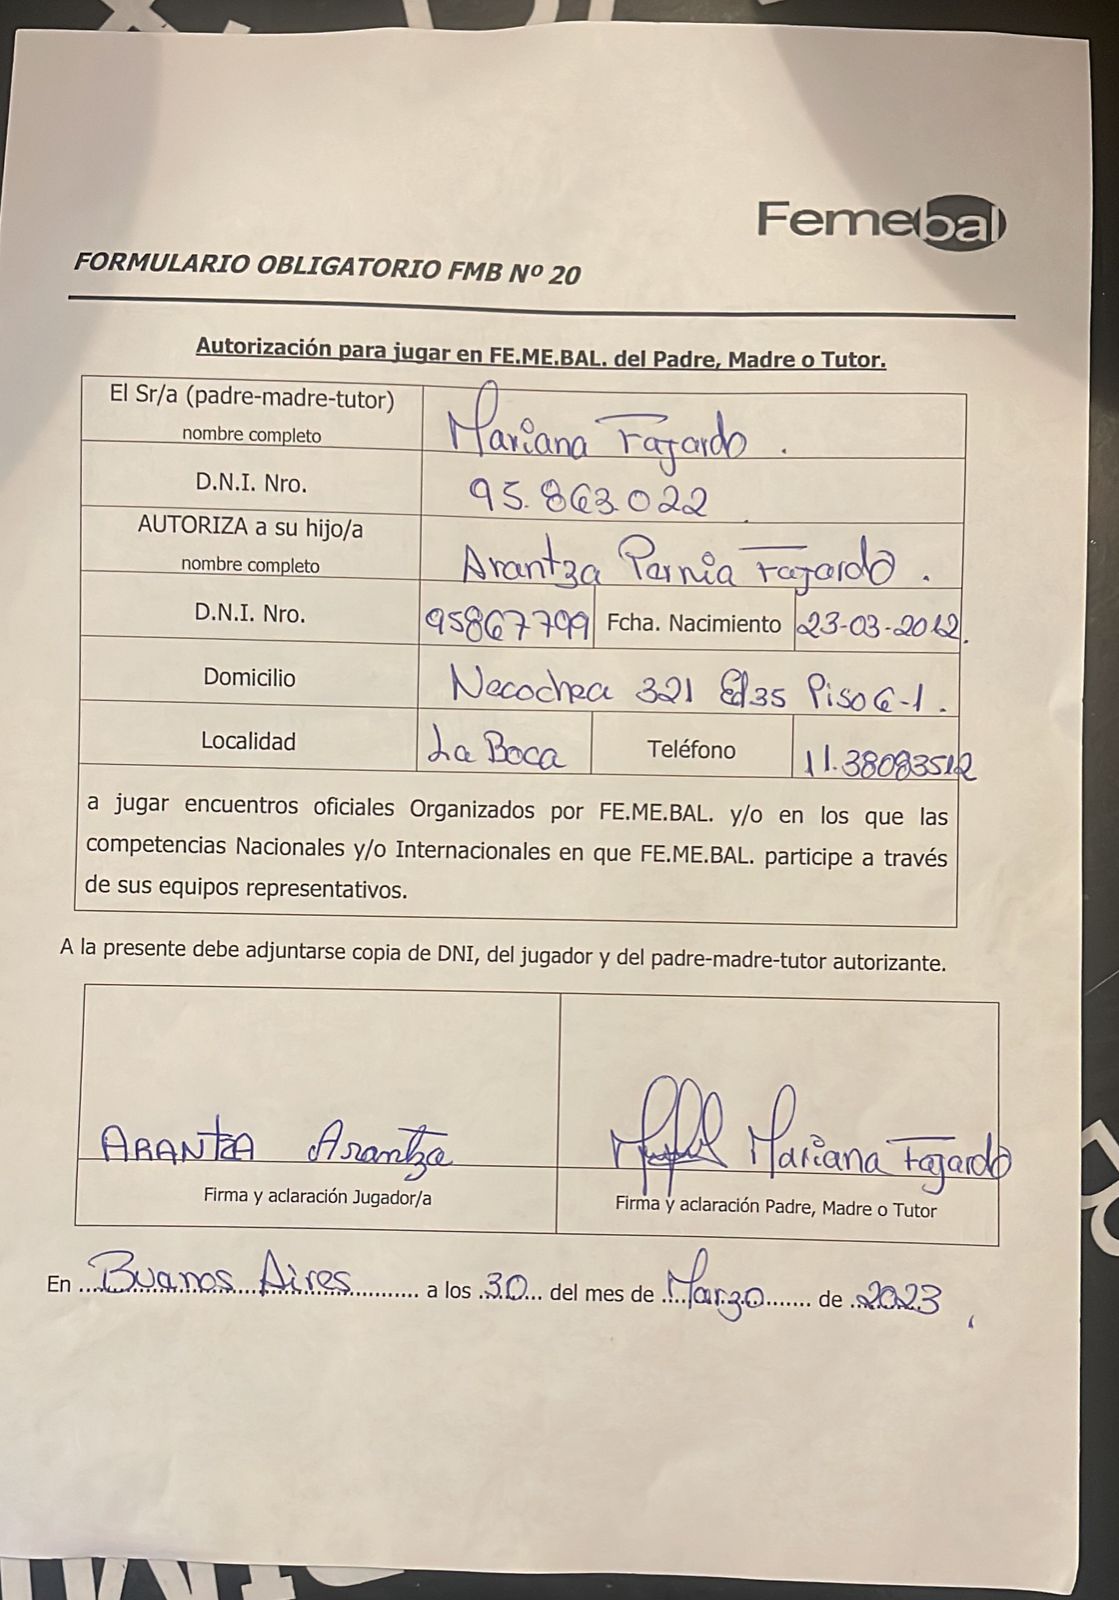 Femebal
FORMULARIO OBLIGATORIO FMB Nº 20
Autorización para jugar en FE.ME.BAL. del Padre, Madre o Tutor.
El Sr/a (padre-madre-tutor)
nombre completo
Mariana Fajardo.
D.N.I. Nro.
95.863.022
AUTORIZA a su hijo/a
nombre completo
Arantza Pernia Fajardo.
D.N.I. Nro.
95867799
Fcha. Nacimiento
23-03-2012.
Domicilio
Necochea 321 Ed35 Piso 6-1.
Localidad
La Boca
Teléfono
11.38083512
a jugar encuentros oficiales Organizados por FE.ME.BAL. y/o en los que las
competencias Nacionales y/o Internacionales en que FE.ME.BAL. participe a través
de sus equipos representativos.
A la presente debe adjuntarse copia de DNI, del jugador y del padre-madre-tutor autorizante.
ARANTZA Arantza
Firma y aclaración Jugador/a
Mariana Fajardo
Firma y aclaración Padre, Madre o Tutor
En Buenos Aires a los 30 del mes de Marzo de 2023